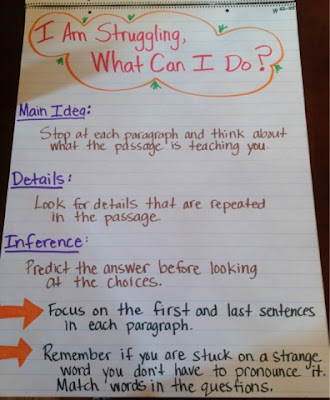 I Am Struggling,
What Can I Do?
Main Idea:
Stop at each paragraph and think about
what the passage is teaching you.
Details:
Look for details that are repeated
in the passage.
Inference:
Predict the answer before looking
at the choices.
Focus on the first and last sentences
in each paragraph.
Remember if you are stuck on a strange
word you don't have to pronounce it.
Match words in the questions.